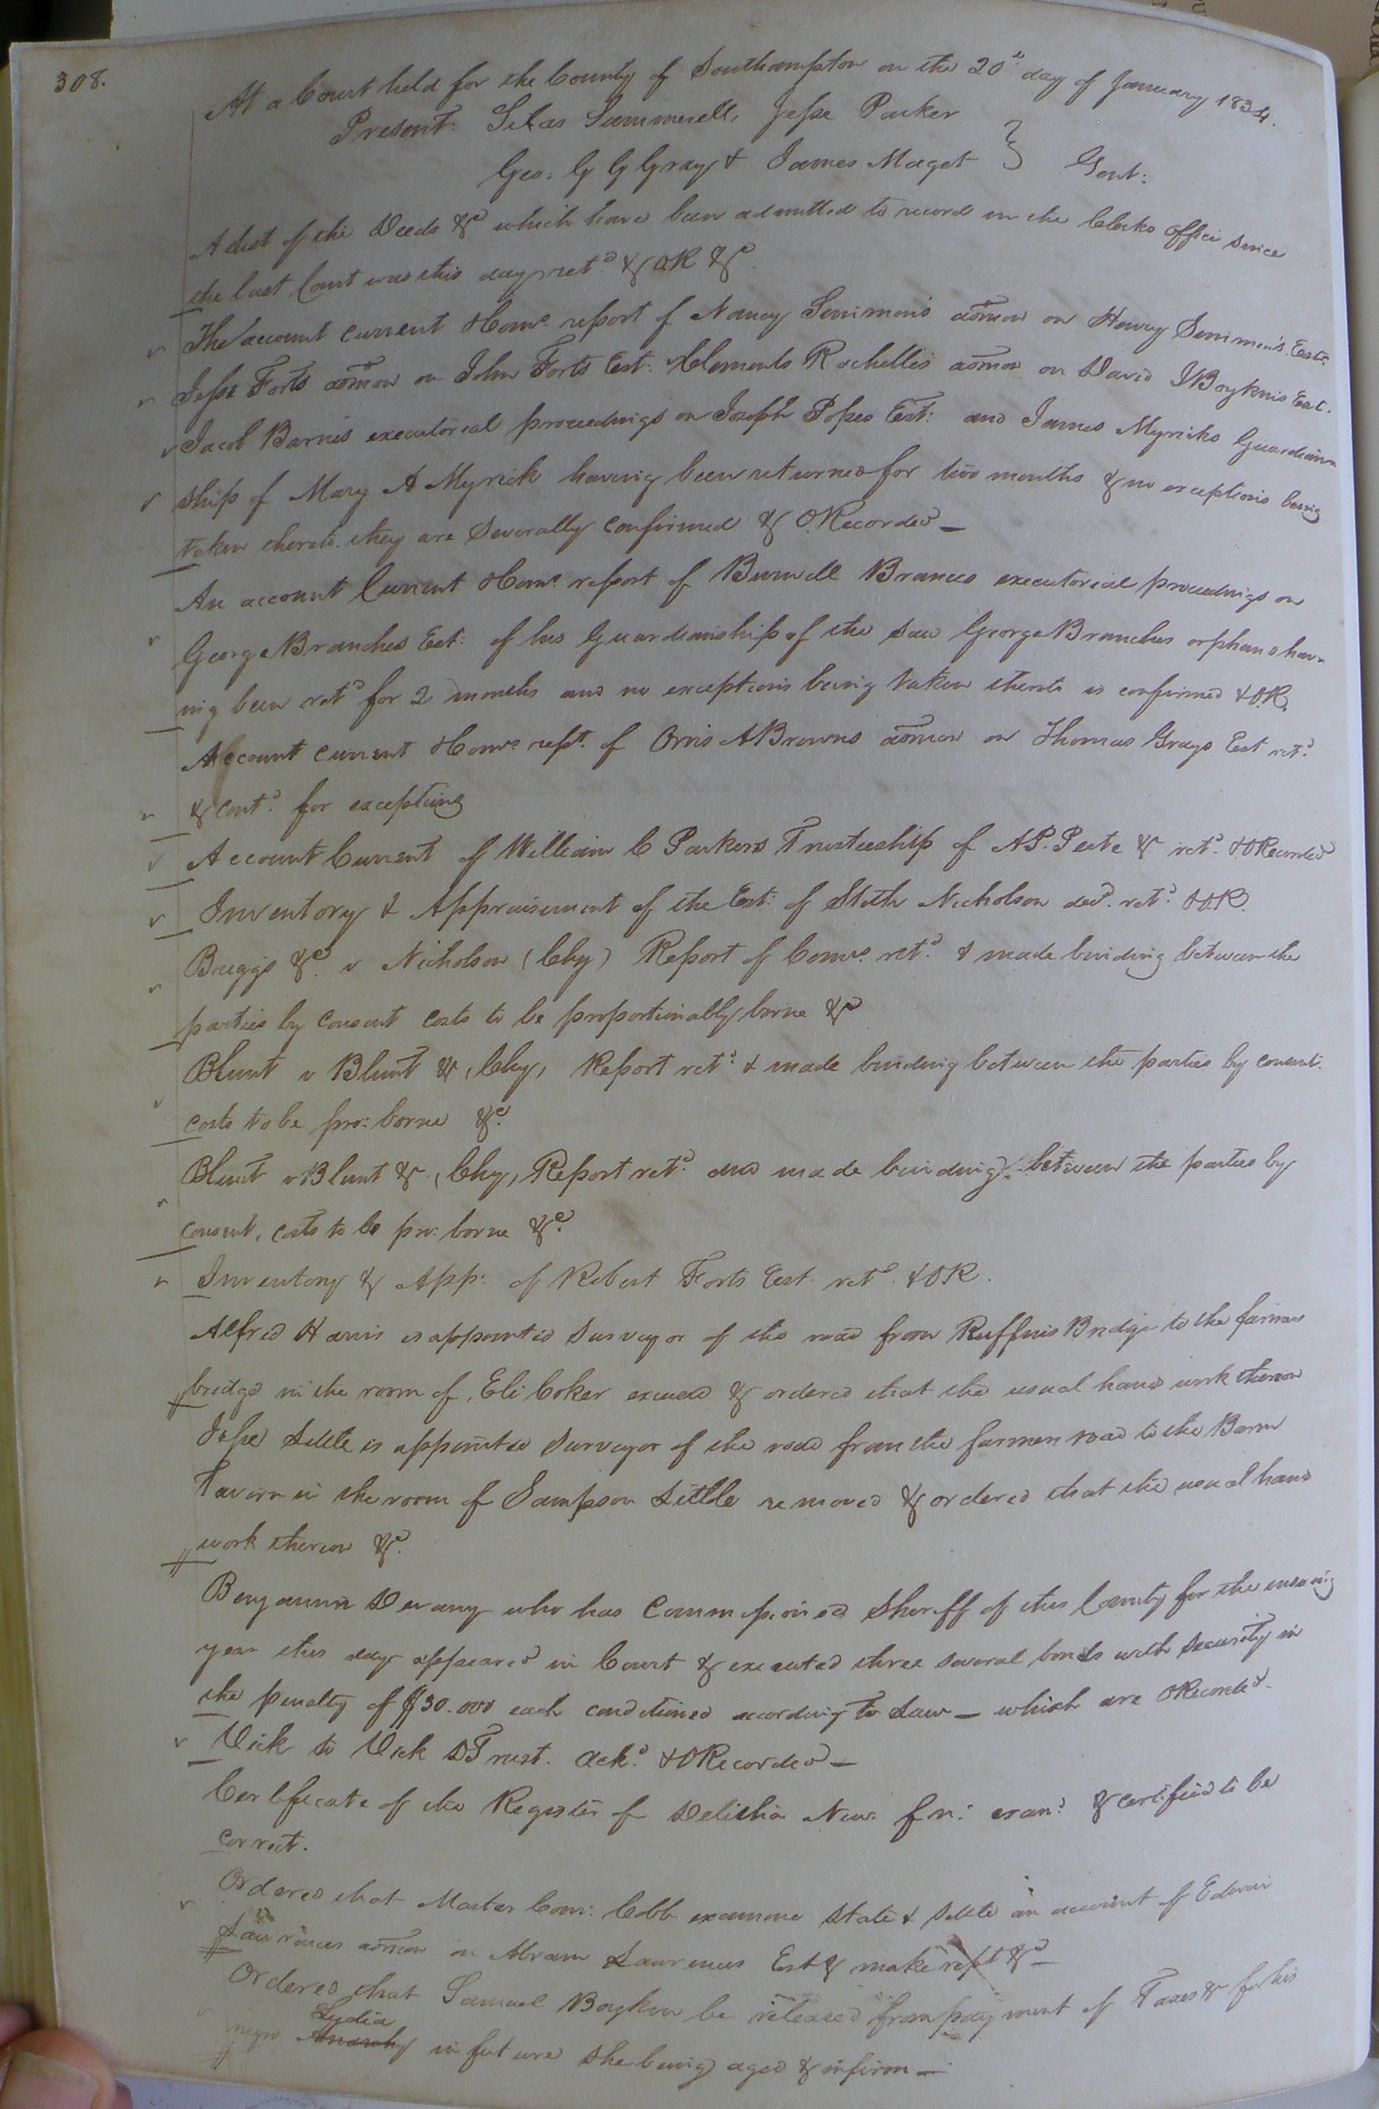 308.
At a Court held for the County of Southampton on the 20th day of January 1834.
Present: Silas Summerell, Jesse Parker
Geo: G G Gray & James Maget } Gent:
A list of the Deeds &c which have been admitted to record in the Clerks office since
the last Court was this day retd & OR &c
The account current & Comrs report of Nancy Simmons admon on Henry Simmons Este
Jesse Forts admon on John Forts Est: Clements Rochelles admon on David J Boykins Est.
Jacob Barnes executorial proceedings on Joseph Popes Est: and James Myricks Guardian
ship of Mary A Myrick having been returned for two months & no exceptions being
taken thereto they are severally confirmed & ORecorded
An account Current & Comrs report of Burwell Branches executorial proceedings on
George Branches Est: of his Guardianship of the said George Branches orphans hav-
ing been retd for 2 months and no exceptions being taken thereto is confirmed & OR.
Account current & Comrs rept. of Orris A Browns admon on Thomas Grays Est retd
& contd for exceptions
Account Current of William C Parkers Trusteeship of AP. Peete & retd & ORecorded
Inventory & Appraisement of the Est: of Stith Nicholson decd. retd & OR.
Briggs &c v Nicholson (Chy) Report of Comrs retd & made binding between the
parties by consent costs to be proportionably borne &c
Blunt v Blunt & (Chy) Report retd & made binding between the parties by consent.
costs to be pro: borne &c
Blunt v Blunt & (Chy) Report retd and made binding between the parties by
consent, costs to be pro: borne &c
Inventory & App: of Robert Forts Est. retd & OR.
Alfred Harris is appointed Surveyor of the road from Ruffins Bridge to the farmers
bridge in the room of Eli Coker excused & ordered that the usual hands work thereon
Jesse Little is appointed Surveyor of the road from the farmers road to the Barn
Tavern in the room of Sampson Little removed & ordered that the usual hands
work thereon &c
Benjamin Devany who has Commissioned Sheriff of this County for the ensuing
year this day appeared in Court & executed three several bonds with security in
the penalty of $30.000 each conditioned according to Law — which are ORecorded
Vick to Vick DTrust. ackd & ORecorded —
Certificate of the Register of Delitha New. fn: exand & certified to be
correct.
Ordered that Master Com: Cobb examine state & settle an account of Edwin
Lawrences admon on Abram Lawrences Est & make rept &c —
Ordered that Samuel Boykin be released from payment of Taxes & for his
Lydia
negro in future she being aged & infirm —